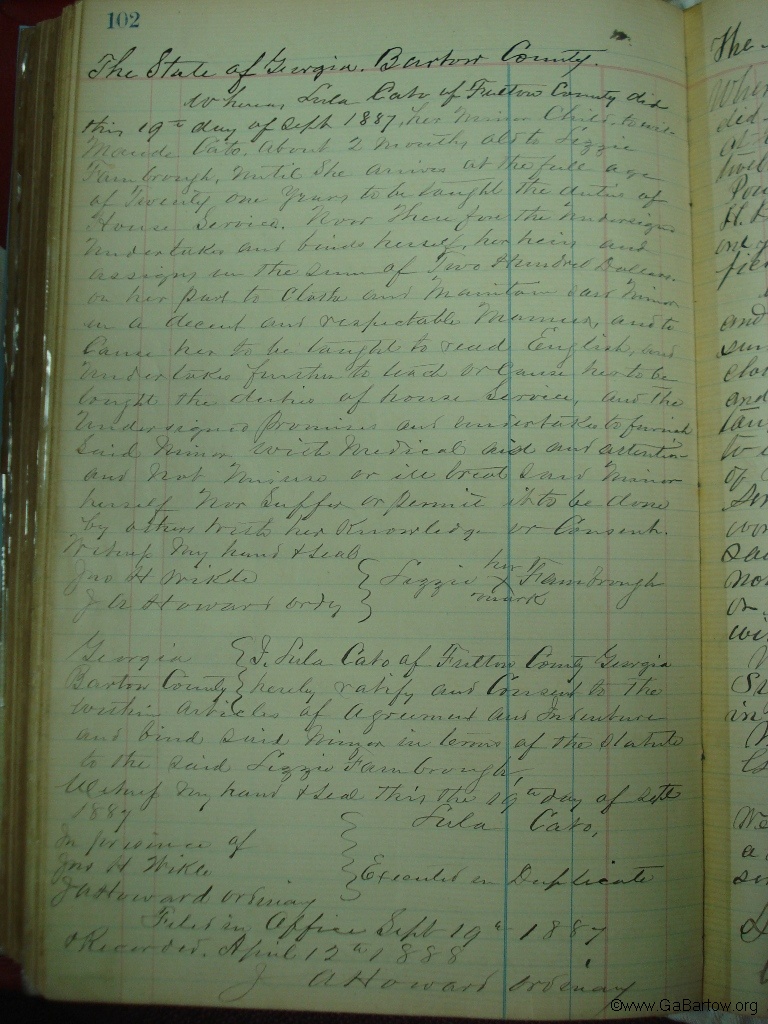 102
The State of Georgia. Bartow County.
Whereas, Lula Cato of Fulton County did
this 19th day of Sept 1887, her minor Child, to wit
Maude Cato. About 2 Months old to Lizzie
Fambrough, until She arrives at the full age
of Twenty one Years to be taught the duties of
House Service. Now Therefore the undersigned
undertakes and binds herself, her heirs and
assigns in the sum of Two Hundred Dollars.
on her part to Clothe and Maintain said Minor
in a decent and respectable Manner, and to
Cause her to be taught to read English, and
undertakes further to teach or Cause her to be
taught the duties of house Service, and the
undersigned promises and undertakes to furnish
said Minor with Medical aid and attention
and Not Misuse or ill treat said Minor
herself Nor Suffer or permit it to be done
by others with her Knowledge or Consent.
Witness My hand & Seal
Jno H Wikle { Lizzie her X mark Fambrough
J A Howard ordy
Georgia { I, Lula Cato of Fulton County Georgia
Bartow County { hereby ratify and Consent to the
within articles of Agreement and Indenture
and bind said Minor in terms of the Statute
to the said Lizzie Fambrough,
Witness My hand & Seal this the 19th day of Sept
1887 Lula Cato,
In presence of
Jno H Wikle { Executed in Duplicate
J A Howard ordinary
Filed in Office Sept 19th 1887
& Recorded, April 12th 1888
J A Howard ordinary
The
and
©www.GaBartow.org